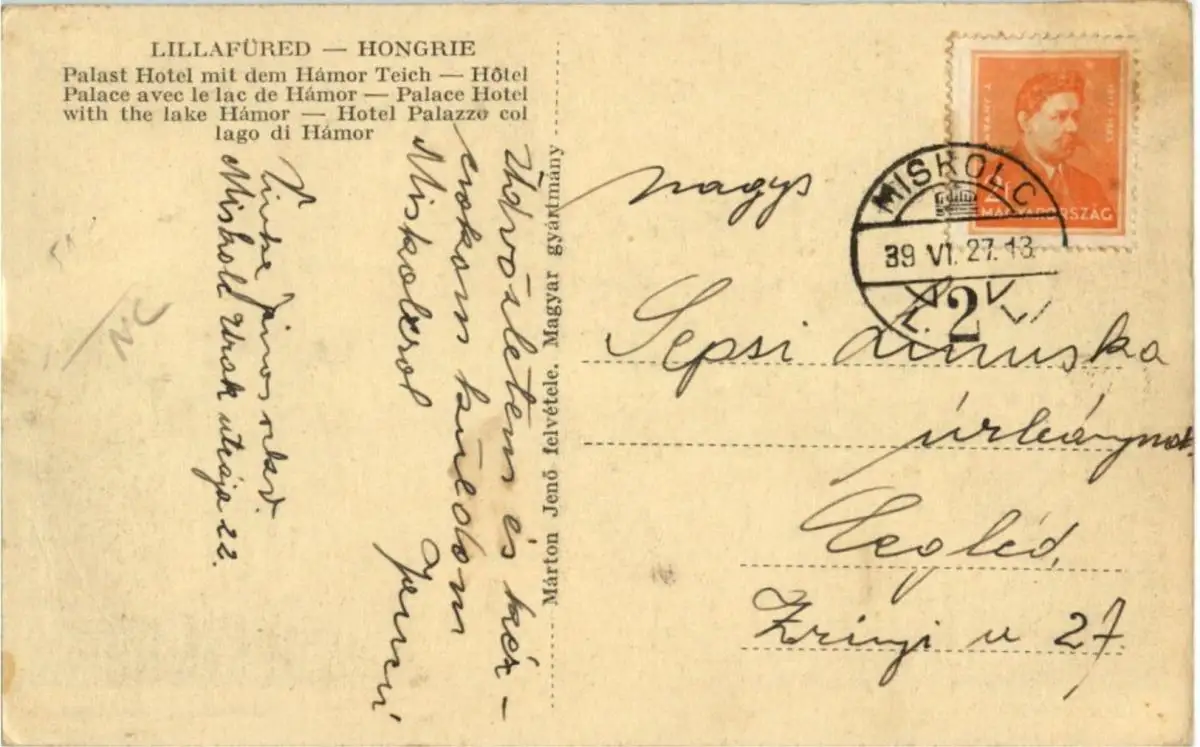 LILLAFÜRED — HONGRIE
Palast Hotel mit dem Hámor Teich — Hôtel
Palace avec le lac de Hámor — Palace Hotel
with the lake Hámor — Hotel Palazzo col
lago di Hámor
Üdvözletem és kéz-
csókom küldöm
Miskolcrol
Jenci
János
Miskolc Urak utcája 22.
Márton Jenő felvétele. Magyar gyártmány
MAGYARORSZÁG
MISKOLC
39 VI. 27. 18
2
nagys
Sepsi Annuska
úrleánynak
Cegléd,
Zrinyi u 27.